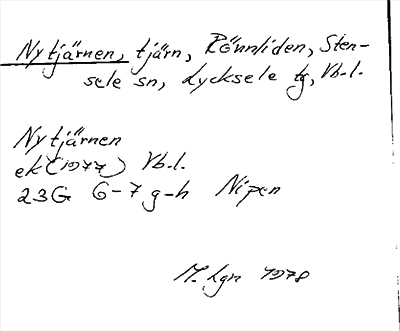 Nytjärnen, tjärn, Rönnliden, Sten-
sele sn, Lycksele tg, Vb.l.
Nytjärnen
ek (1977) Vb.l.
23G 6-7 g-h Nipen
M. Lgn 1978